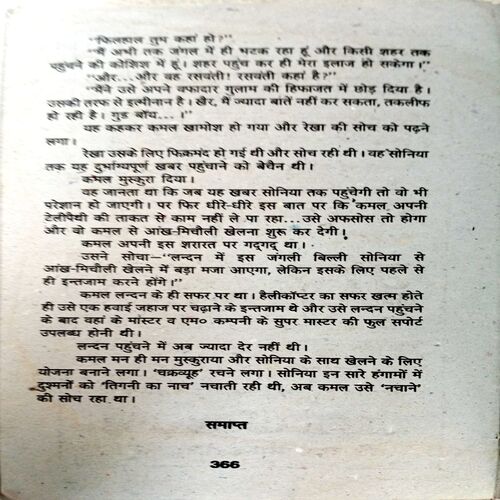 "फिलहाल तुम कहां हो?"
"मैं अभी तक जंगल में ही भटक रहा हूं और किसी शहर तक
पहुंचने की कोशिश में हूं। शहर पहुंच कर ही मेरा इलाज हो सकेगा।"
"और...और वह रसवंती! रसवंती कहां है?"
"मैंने उसे अपने वफादार गुलाम की हिफाजत में छोड़ दिया है।
उसकी तरफ से इत्मीनान है। खैर, मैं ज्यादा बातें नहीं कर सकता, तकलीफ
हो रही है। गुड बॉय... ।"
यह कहकर कमल खामोश हो गया और रेखा की सोच को पढ़ने
लगा।
रेखा उसके लिए फिक्रमंद हो गई थी और सोच रही थी। वह सोनिया
तक यह दुर्भाग्यपूर्ण खबर पहुंचाने को बेचैन थी।
कमल मुस्कुरा दिया।
वह जानता था कि जब यह खबर सोनिया तक पहुंचेगी तो वो भी
परेशान हो जाएगी। पर फिर धीरे-धीरे इस बात पर कि कमल अपनी
टेलीपैथी की ताकत से काम नहीं ले पा रहा...उसे अफसोस तो होगा
और वो कमल से आंख-मिचौली खेलना शुरू कर देगी।
कमल अपनी इस शरारत पर गद्गद् था।
उसने सोचा—"लन्दन में इस जंगली बिल्ली सोनिया से
आंख-मिचौली खेलने में बड़ा मजा आएगा, लेकिन इसके लिए पहले से
ही इन्तजाम करने होंगे।"
कमल लन्दन के ही सफर पर था। हैलीकॉप्टर का सफर खत्म होते
ही उसे एक हवाई जहाज पर चढ़ाने के इन्तजाम थे और उसे लन्दन पहुंचने
के बाद वहां के मास्टर व एम० कम्पनी के सुपर मास्टर की फुल सपोर्ट
उपलब्ध होनी थी।
लन्दन पहुंचने में अब ज्यादा देर नहीं थी।
कमल मन ही मन मुस्कुराया और सोनिया के साथ खेलने के लिए
योजना बनाने लगा। 'चक्रव्यूह' रचने लगा। सोनिया इन सारे हंगामों में
दुश्मनों को 'तिगनी का नाच' नचाती रही थी, अब कमल उसे 'नचाने'
की सोच रहा था।
समाप्त
366